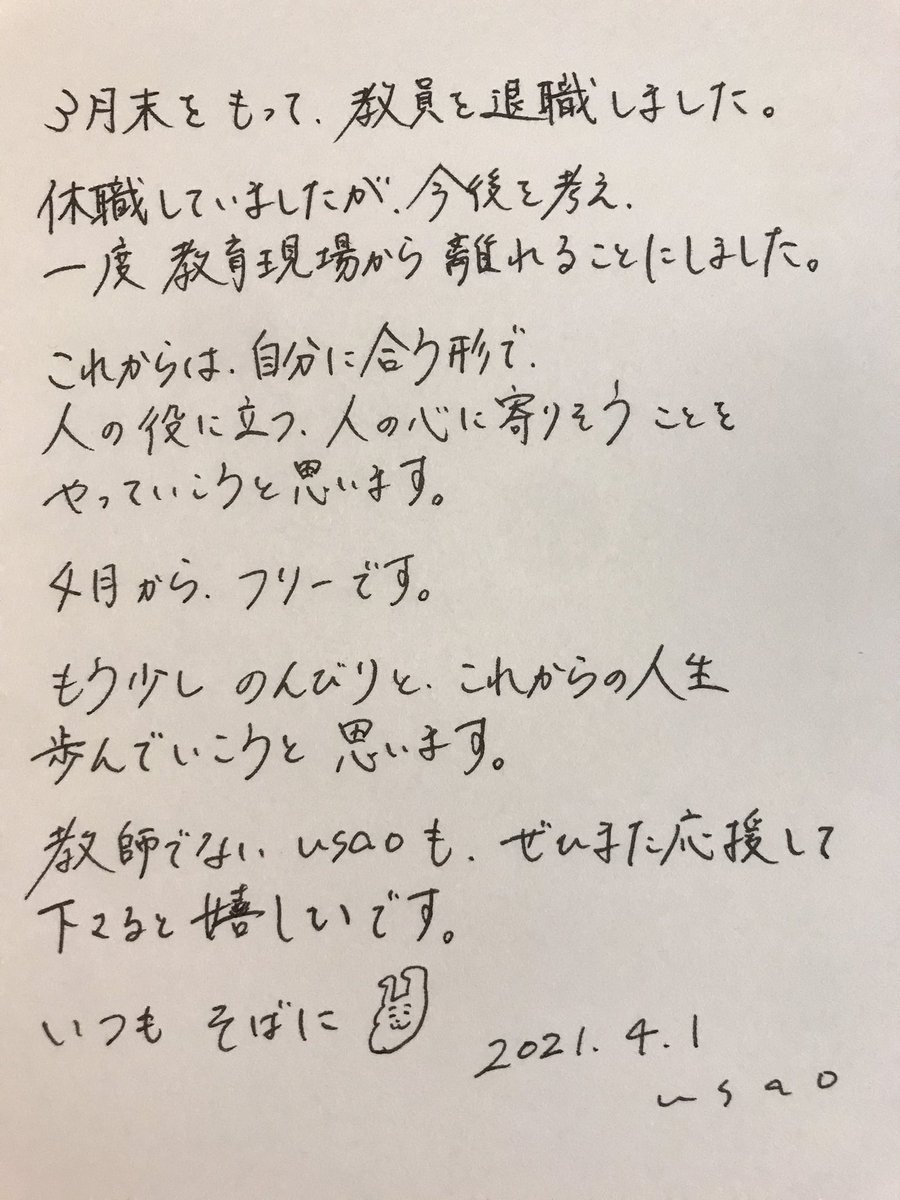 3月末をもって、教員を退職しました。
休職していましたが、今後を考え、
一度 教育現場から離れることにしました。
これからは、自分に合う形で、
人の役に立つ、人の心に寄りそうことを
やっていこうと思います。
4月から、フリーです。
もう少し のんびりと、これからの人生
歩んでいこうと 思います。
教師でない usaoも、ぜひまた応援して
下さると嬉しいです。
いつも そばに
2021.4.1
usao